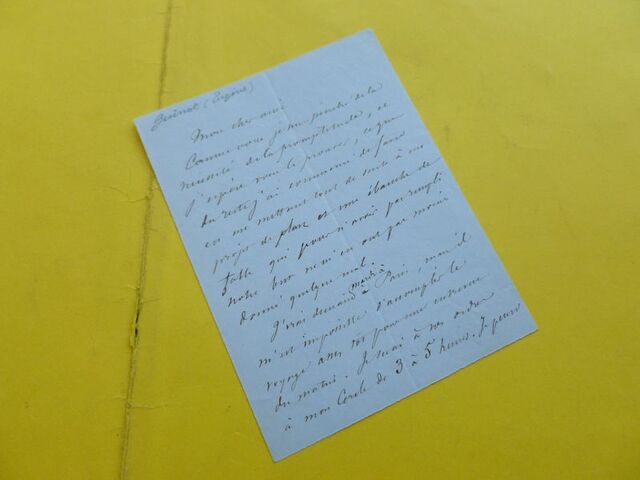 Guénot (Eugène)
Mon cher ami
Comme vous je suis pénétré de la
nécessité de la promptitude, ce
j'espère vous le prouver, ce que
du reste j'ai commencé de faire
en me mettant tout de suite à un
projet de place et une ébauche de
table qui pour n'avoir pas rempli
notre but ne m'en ont pas moins
donné quelque mal.
J'irai demain mardi à Paris, mais il
m'est impossible d'accomplir le
voyage assez tôt pour une entrevue
du matin. Je serai à vos ordres
à mon Cercle de 3 à 5 heures. Je pense